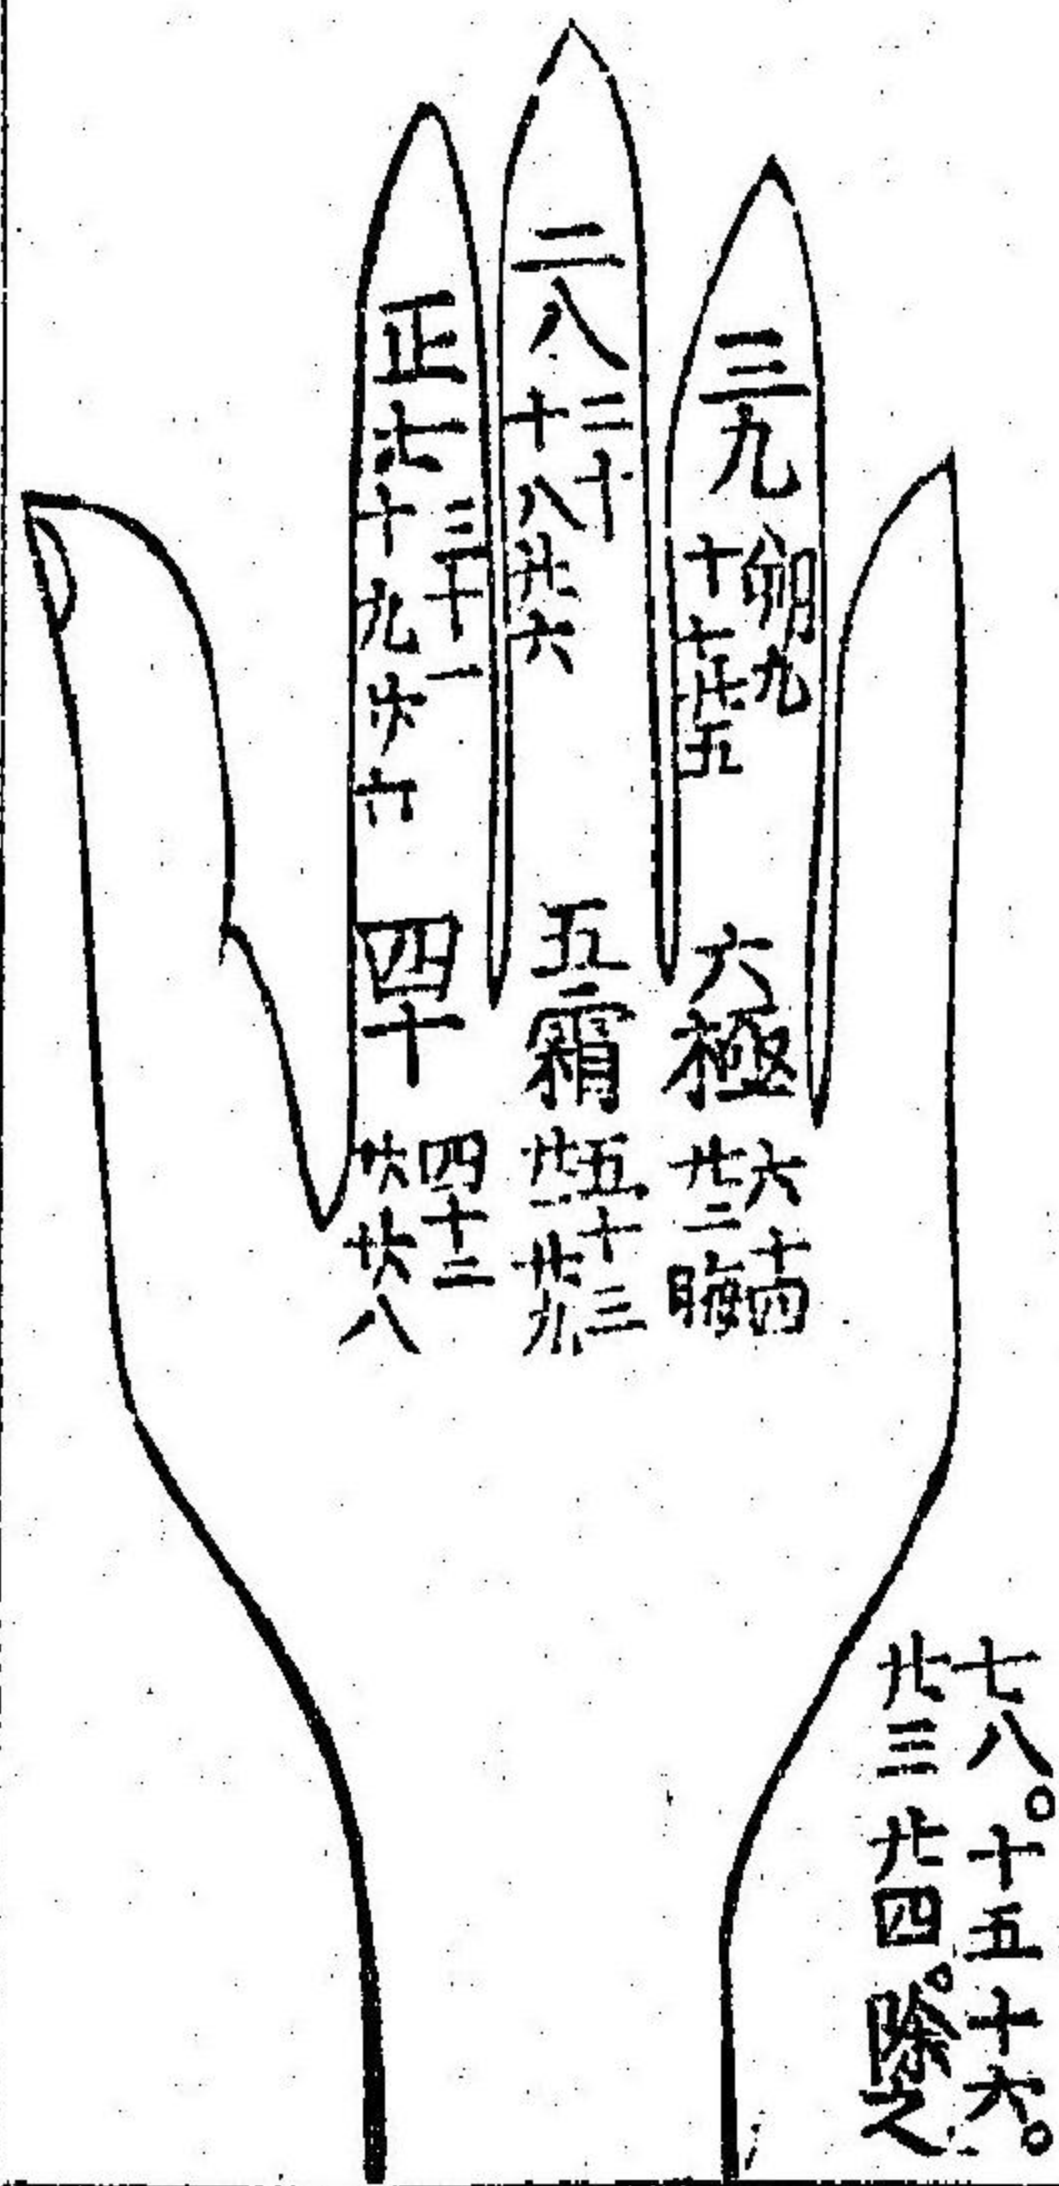 三九
朔九
十七廿五
二八
二十
十八廿六
正七
三十一
十九
六極
六十四
廿二晦
五霜
五十三
廿一廿九
四十
四十二
廿八
七八。十五十六。
廿三廿四。除之